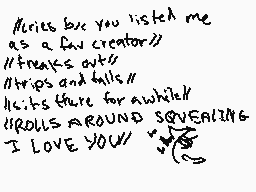 //cries buc you listed me
as a fav creator//
//freaks out//
//trips and falls//
//sits there for awhile//
//ROLLS AROUND SQUEALING
I LOVE YOU//